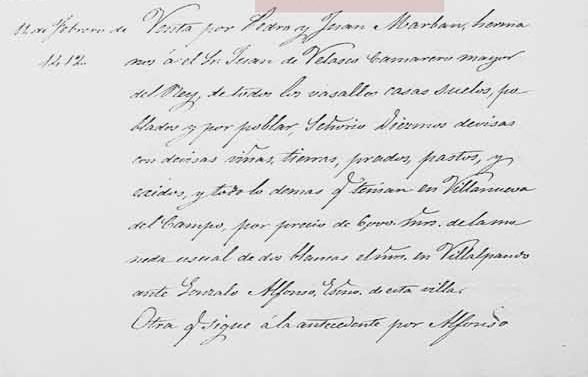 12 de Febrero de
1412.
Venta por Pedro y Juan Marban, herma
nos á el Sr. Juan de Velasco Camarero mayor
del Rey, de todos los vasallos casas suelos, po
blados y por poblar, Señorio Diezmos devisas
con devisas viñas, tierras, prados, pastos, y
exidos, y todo lo demas q.e tenian en Villanueva
del Campo, por precio de 6000. mrs. de la mo
neda usual de dos blancas el mrs. en Villalpando
ante Gonzalo Alfonso, Esno. de esta villa.
Otra q.e sigue á la antecedente por Alfonso